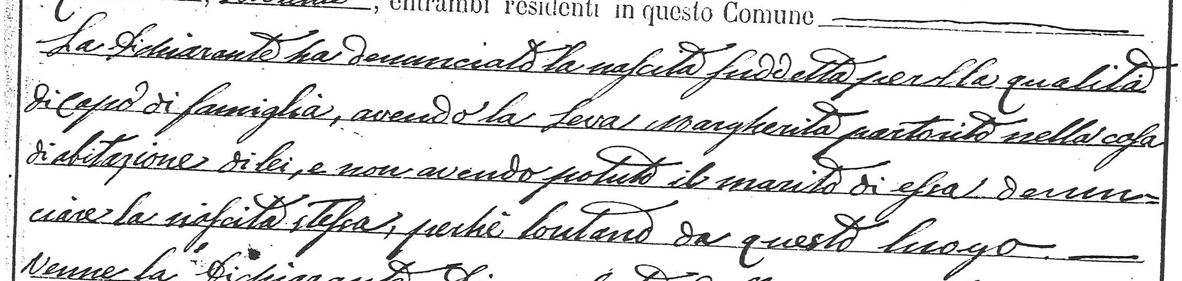 , entrambi residenti in questo Comune
La dichiarante ha denunciato la nascita suddetta per la qualità
di capo di famiglia, avendo la Seva Margherita partorito nella casa
di abitazione di lei, e non avendo potuto il marito di essa denun=
ciare la nascita stessa, perché lontano da questo luogo.
Venne la dichiarante